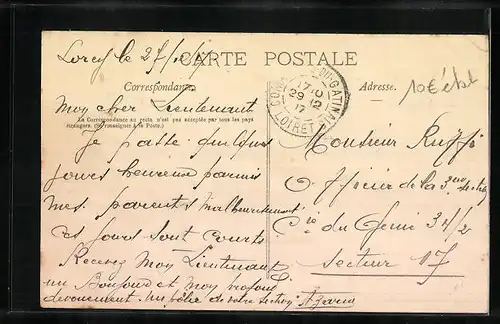 Lorcy le 27/12/17
CARTE POSTALE
Correspondance
Adresse.
10€
Mon cher Lieutenant
La Correspondance au recto n'est pas acceptée par tous les pays
étrangers. (Se renseigner à la Poste.)
Je passe quelques
jours heureux parmis
mes parents malheureusement
ces jours sont courts
Recevez Mon Lieutenant
un Bonjour et mon profond
devouement. Un de votre section
GATINAIS
29 12
17
LOIRET
Monsieur
Officier de la 3me section
Cie du Genie 34/2
Secteur 17